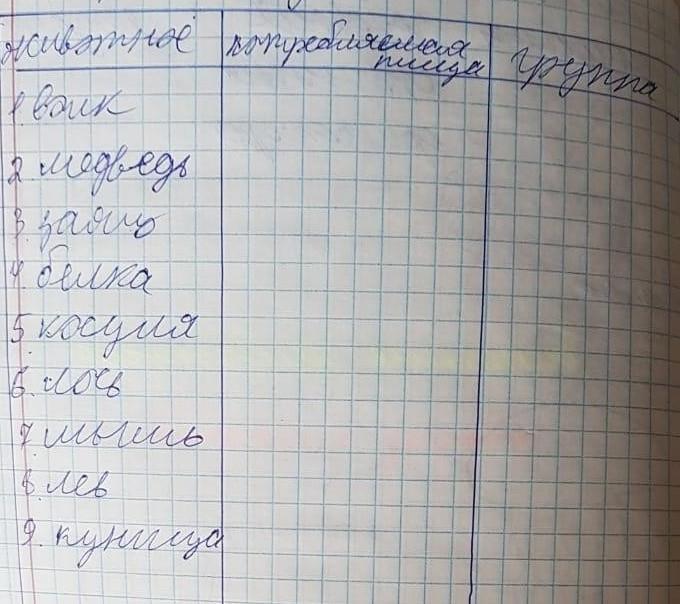 животное потребляемая пища группа
1. волк
2. медведь
3. заяць
4. белка
5. косуля
6. лось
7. мышь
8. лев
9. куница